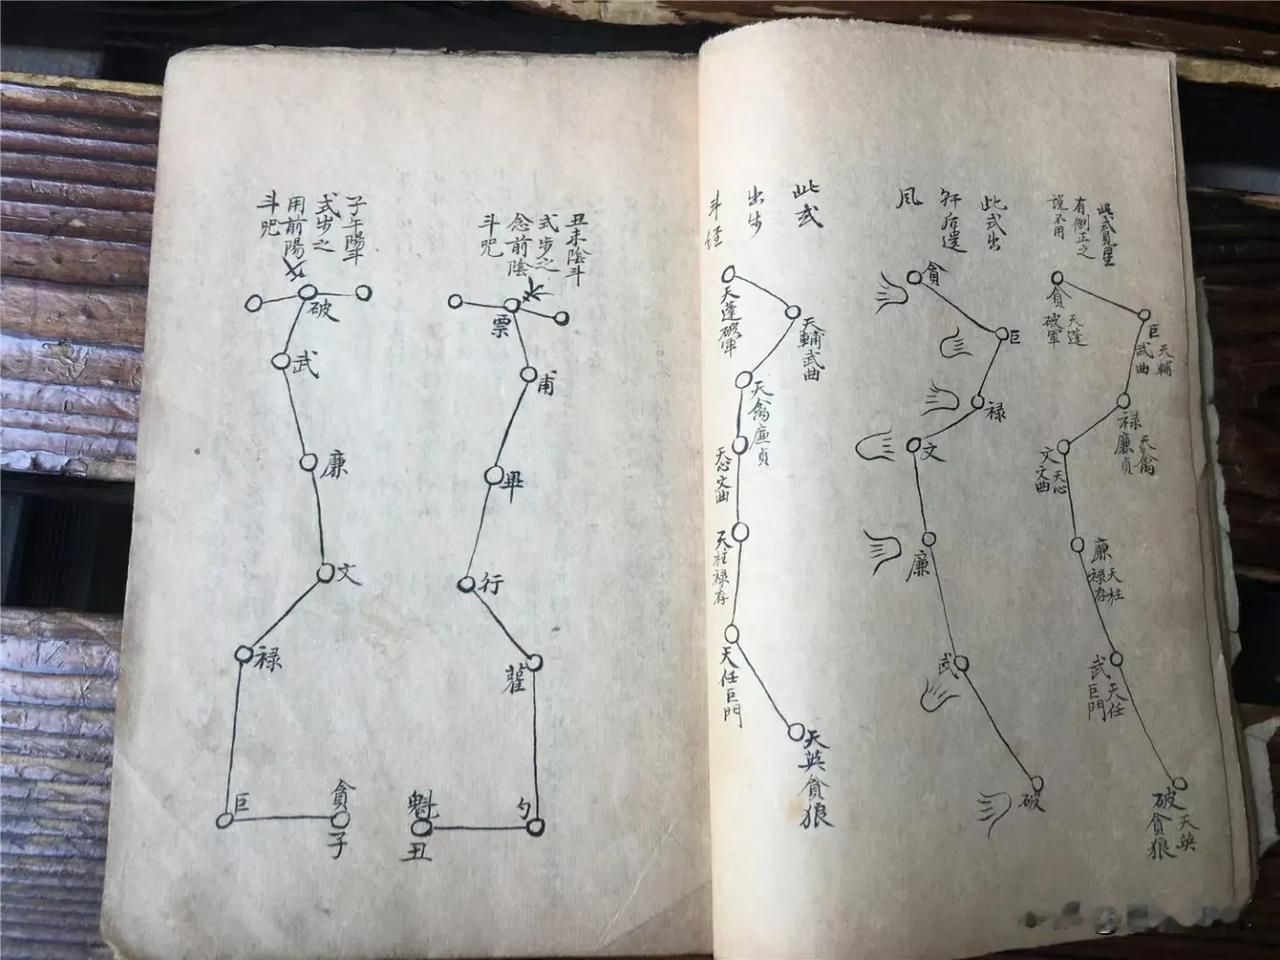 此式見星
有倒正之
說不用
貪
天蓬
破軍
巨
天輔
武曲
禄
天禽
廉貞
文
天心
文曲
廉
天柱
禄存
武
天任
巨門
破
天英
貪狼
此式出
風
貪
巨
禄
文
廉
武
破
此式
出步
斗
天蓬破軍
天輔武曲
天禽廉貞
天心文曲
天柱禄存
天任巨門
天英貪狼
丑未陰斗
式步之
念前陰
斗咒
票
甫
畢
行
勺
魁
丑
子午陽斗
式步之
用前陽
斗咒
破
武
廉
文
禄
巨
貪
子